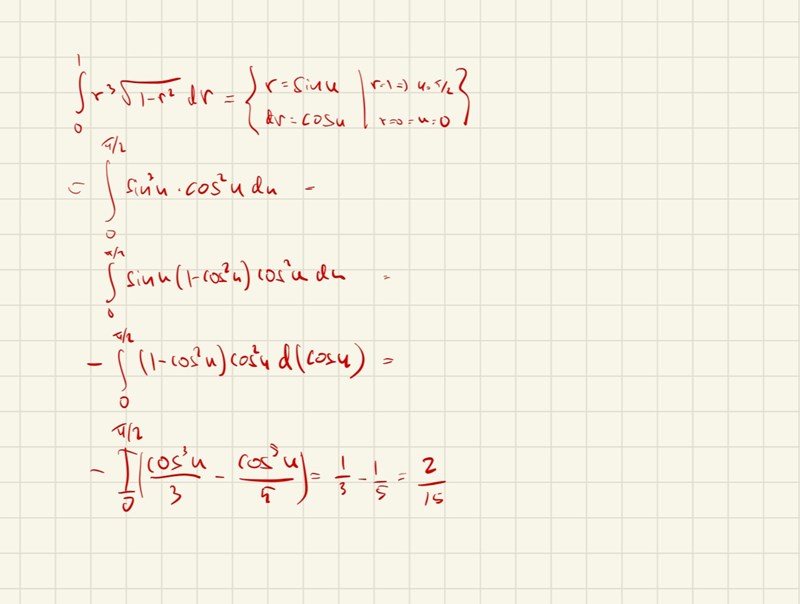 ∫₀¹ r³√(1-r²) dr = { r = sin u | r=1 => u=π/2
dr = cos u | r=0 = u=0 }
= ∫₀^{π/2} sin³u · cos²u du =
∫₀^{π/2} sin u (1-cos²u) cos²u du =
- ∫₀^{π/2} (1-cos²u) cos²u d(cos u) =
- ]₀^{π/2} (cos³u/3 - cos⁵u/5) = 1/3 - 1/5 = 2/15